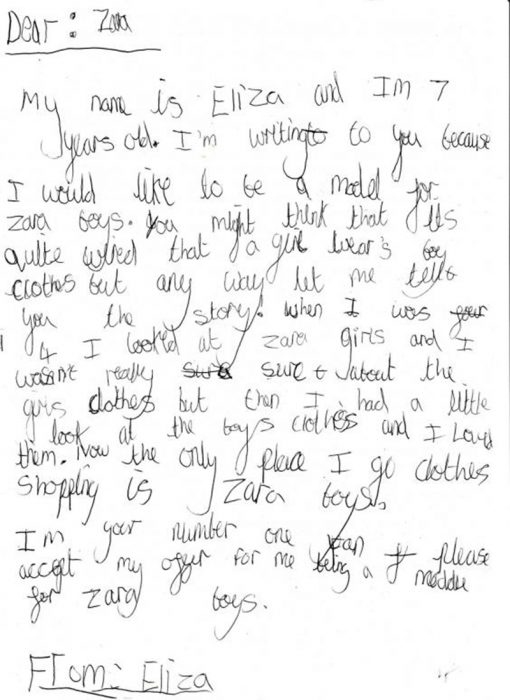 Dear: Zara
My name is Eliza and Im 7
years old. I'm writing to you because
I would like to be a model for
zara boys. You might think that its
quite wired that a girl wear's boy
clothes but any way let me tell
you the story! when I was
4 I looked at zara girls and I
wasn't really sure about the
girls clothes but then I had a little
look at the boys clothes and I Loved
them. Now the only place I go clothes
shopping is Zara boys.
Im your number one fan please
accept my offer for me being a moddle
for zara boys.
From: Eliza